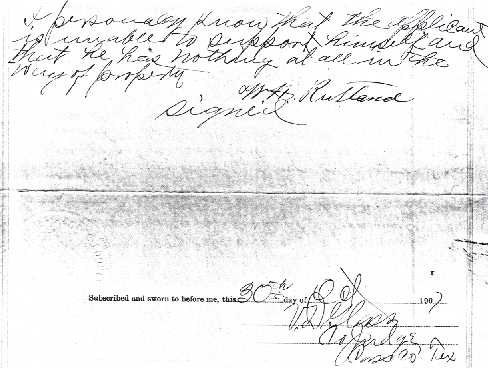 I personaly know that the applicant
is unable to support himself and
that he has nothing at all in the
way of property
W H Rutland
Signed
Subscribed and sworn to before me, this 30th day of Oct 1907
Co Judge
Cass Co Tex